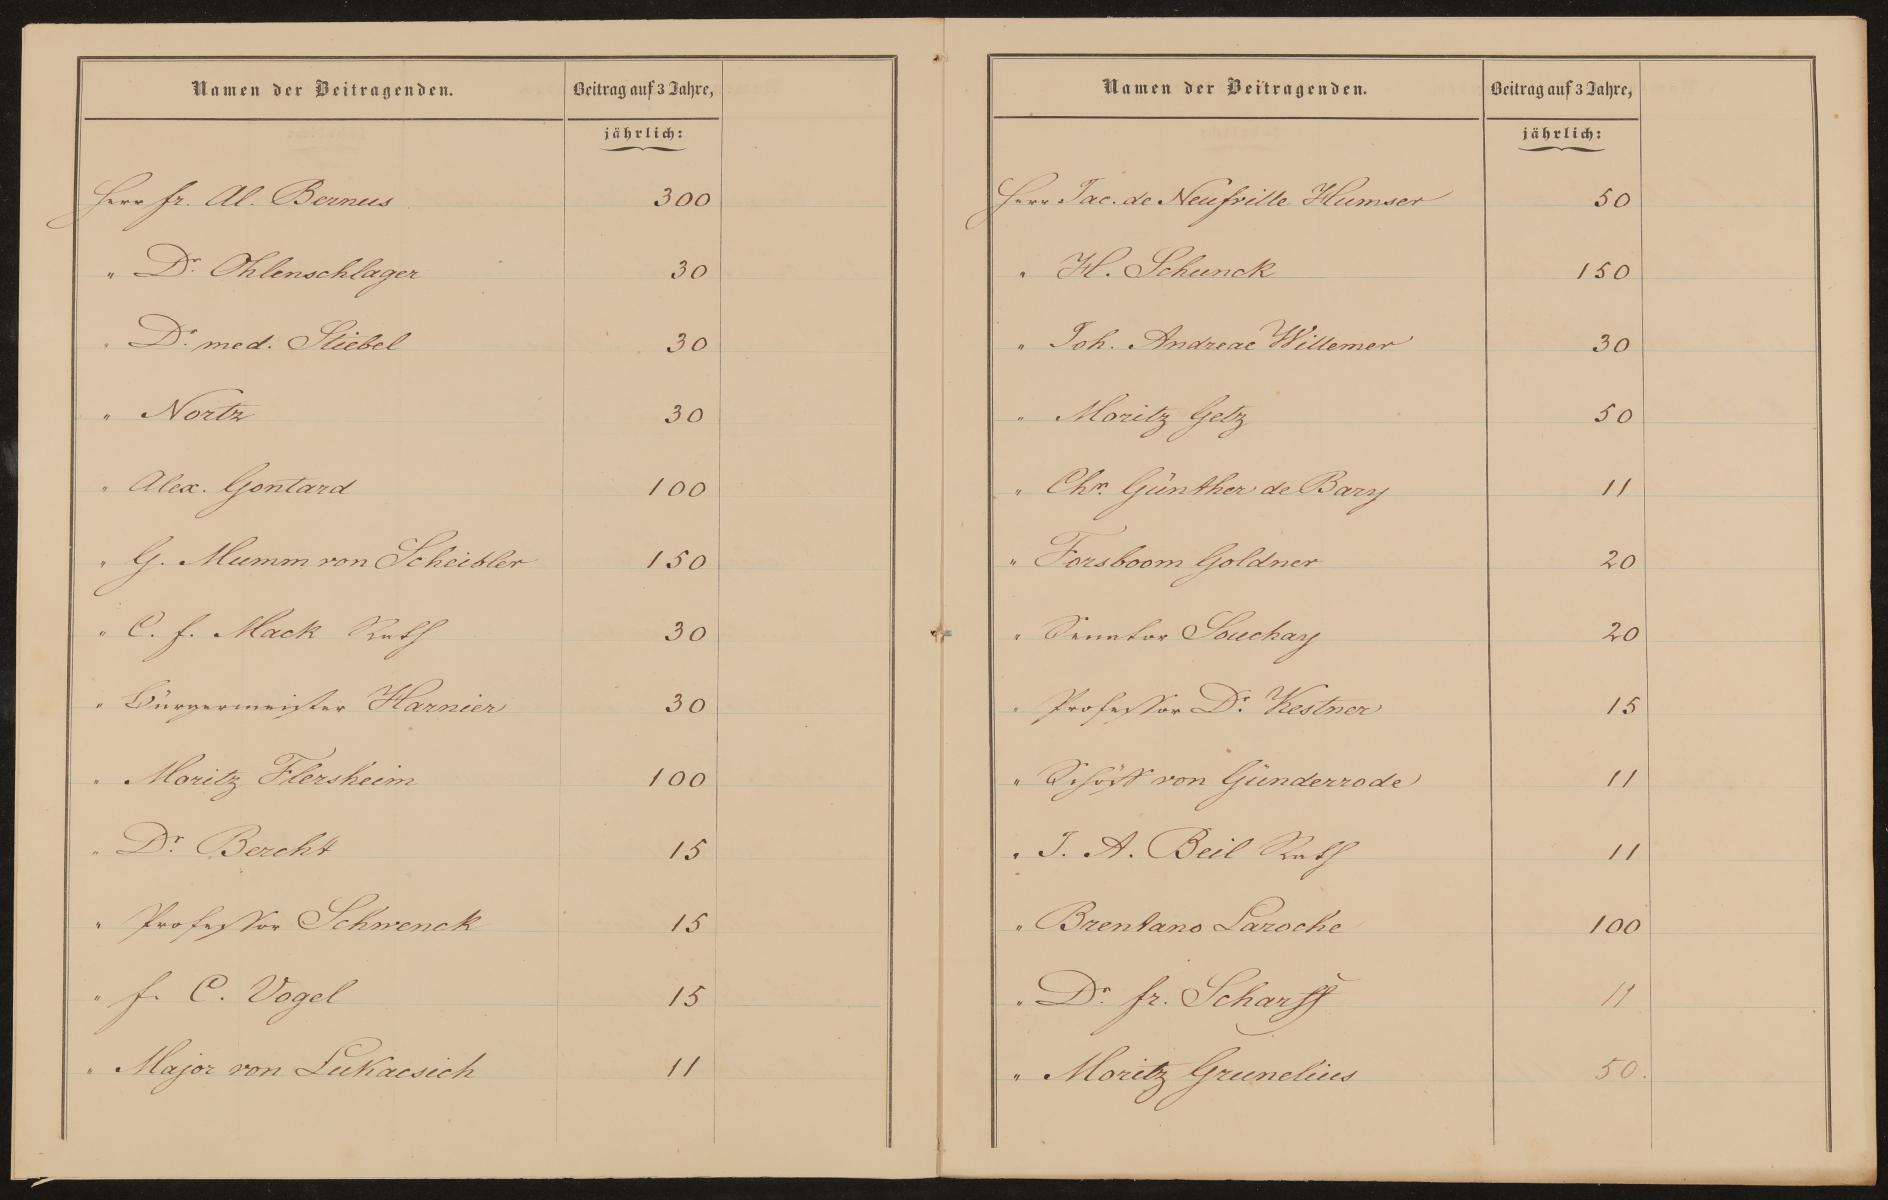 Namen der Beitragenden. Beitrag auf 3 Jahre,
jährlich:
Herr Fr. Al. Bernus 300
" Dr. Ohlenschlager 30
" Dr. med. Stiebel 30
" Nortz 30
" Alex. Gontard 100
" G. Mumm von Scheibler 150
" C. F. Mack Rath 30
" Bürgermeister Harnier 30
" Moritz Flersheim 100
" Dr. Bercht 15
" Professor Schwenck 15
" F. C. Vogel 15
" Major von Lukacsich 11
Namen der Beitragenden. Beitrag auf 3 Jahre,
jährlich:
Herr Jac. de Neufville Humser 50
" H. Schunck 150
" Joh. Andreae Willemer 30
" Moritz Getz 50
" Chr. Günther de Bary 11
" Forsboom Goldner 20
" Senator Souchay 20
" Professor Dr. Kestner 15
" Schöff von Günderrode 11
" J. A. Beil Rath 11
" Brentano Laroche 100
" Dr. Fr. Scharff 11
" Moritz Grunelius 50.